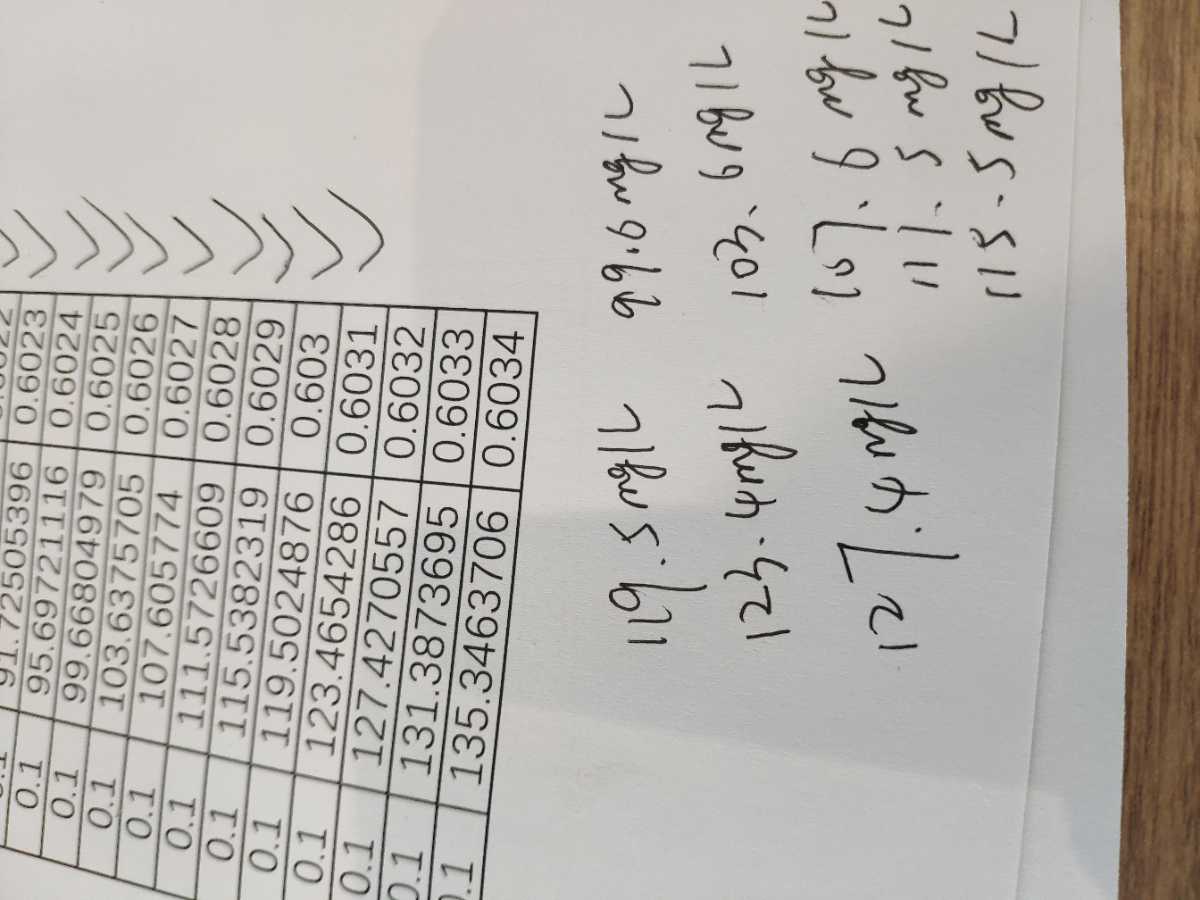 91.72505396 0.6023
0.1 95.69721116 0.6024
0.1 99.66804979 0.6025
0.1 103.6375705 0.6026
0.1 107.605774 0.6027
0.1 111.5726609 0.6028
0.1 115.5382319 0.6029
0.1 119.5024876 0.603
0.1 123.4654286 0.6031
0.1 127.4270557 0.6032
0.1 131.3873695 0.6033
0.1 135.3463706 0.6034
119.5 mg/L 99.6 mg/L
123.4 mg/L 103.6 mg/L
127.4 mg/L 107.6 mg/L
111.5 mg/L
115.5 mg/L